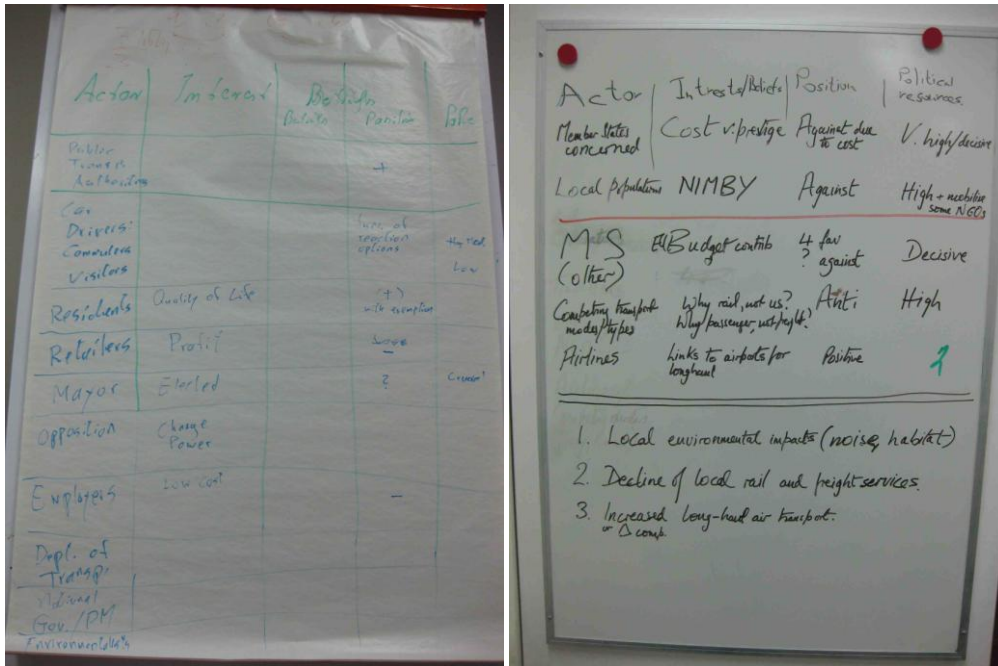 Actor Interest
Public
Transp.
Authorities +
Car
Drivers:
Commuters
Visitors
options
Low
Residents Quality of Life (+)
with exemption
Retailers Profit Some
–
Mayor Elected ?
Opposition Change
Power
Employers Low cost –
Dept. of
Transp.
National
Gov./PM
Environmentalists
Actor Intrests/Beliefs Position Political
resources.
Member States
concerned Cost v. prestige Against due
to cost V. high/decisive
Local populations NIMBY Against High + mobilise
some NGOs
MS
(other) Budget contrib 4 fav
? against Decisive
Competing transport
modes/types Why rail, not us?
Why passenger, not freight? Anti High
Airlines Links to airpots for
longhaul Positive ?
1. Local environmental impacts (noise, habitat)
2. Decline of local rail and freight services.
3. Increased long-haul air transport.
or Δ comp.